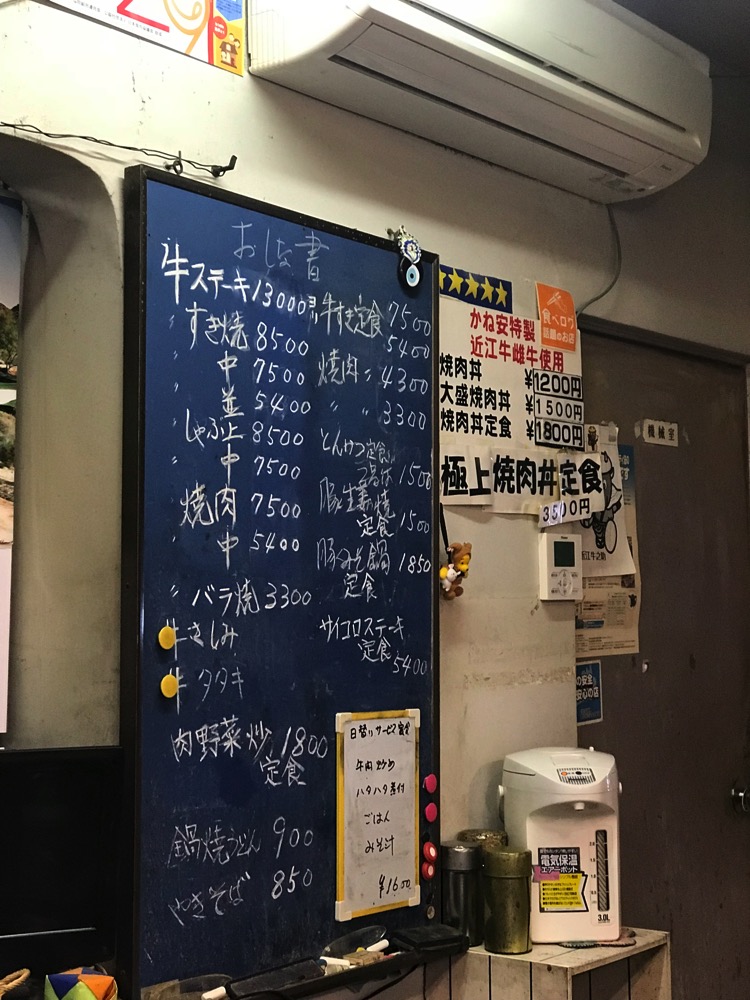 おしな書
牛ステーキ 13000ヨリ
〃 すき焼 8500
〃 中 7500
並 5400
〃 しゃぶ上 8500
〃 中 7500
焼肉 7500
〃 中 5400
〃 バラ焼 3300
牛さしみ
牛タタキ
肉野菜炒定食 1800
鍋焼うどん 900
やきそば 850
牛すき定食 7500
5400
焼肉 〃 4300
〃 〃 3300
とんかつ定食
1500
豚生姜焼定食 1500
豚みそ鍋定食 1850
サイコロステーキ定食 5400
日替りサービス定食
牛肉炒め
ハタハタ煮付
ごはん
みそ汁
¥1600
食べログ
話題のお店
かね安特製
近江牛雌牛使用
焼肉丼 ¥1200円
大盛焼肉丼 ¥1500円
焼肉丼定食 ¥1800円
極上焼肉丼定食
3500円
機械室
近江牛之助
の安全
安心の店
電気保温
エアーポット
3.0L